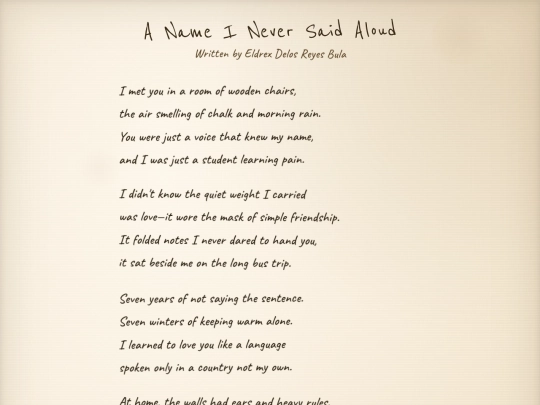 A Name I Never Said Aloud
Written by Eldrex Delos Reyes Bula
I met you in a room of wooden chairs,
the air smelling of chalk and morning rain.
You were just a voice that knew my name,
and I was just a student learning pain.
I didn't know the quiet weight I carried
was love—it wore the mask of simple friendship.
It folded notes I never dared to hand you,
it sat beside me on the long bus trip.
Seven years of not saying the sentence.
Seven winters of keeping warm alone.
I learned to love you like a language
spoken only in a country not my own.
At home, the walls had ears and heavy rules,